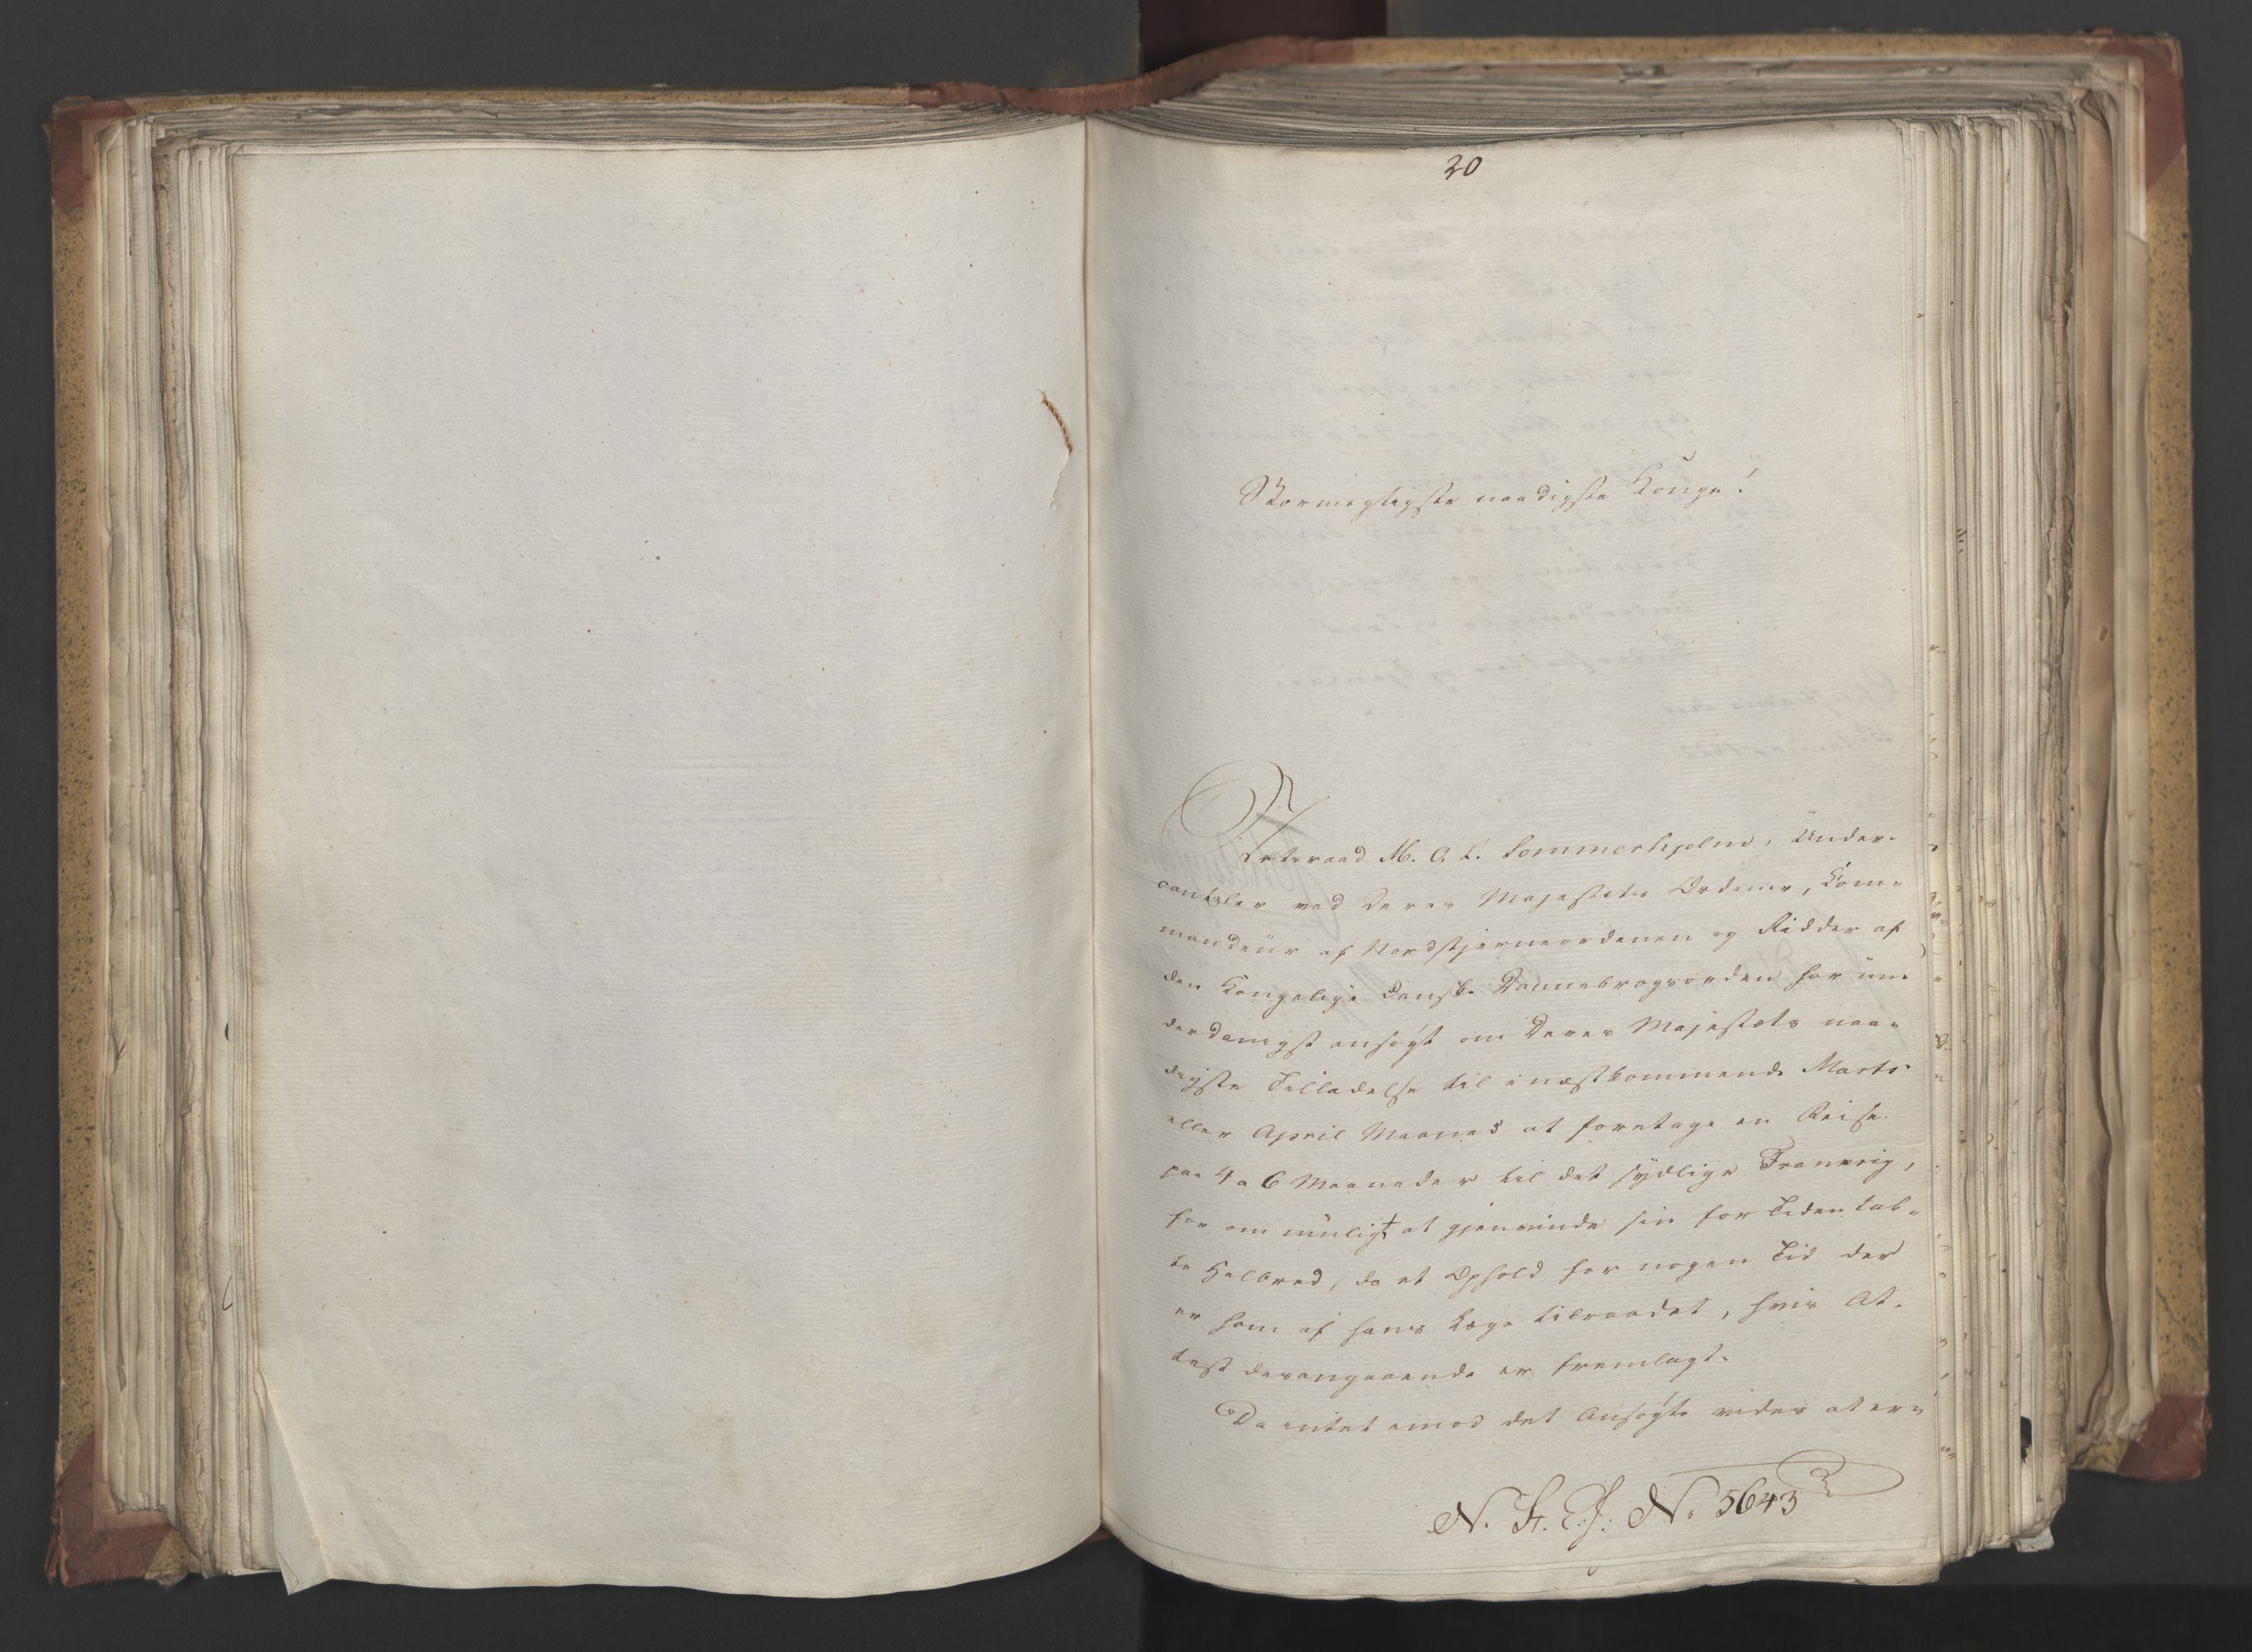 20
Stormegtigste naadigste Konge!
Etatsraad M. A. L. Sommerhjelm, Under-
cantzler ved Deres Majestæts Ordener, Kom-
mandeur af Nordstjerneordenen og Ridder af
den Kongelige Dansk. Dannebrogsorden har un-
derdanigst ansøgt om Deres Majestæts naa-
digste Tilladelse til i næstkommende Marts
eller April Maaned at foretage en Reise
paa 4 a 6 Maaneder til det sydlige Frankrig,
for om muligt at gjenvinde sin for Tiden tab-
te Helbred, da et Ophold for nogen Tid der
er ham af hans Læge tilraadet, hvis At-
test desangaaende er fremlagt.
Da intet imod det Ansøgte vides at erin
N. St. E. J. No 5643